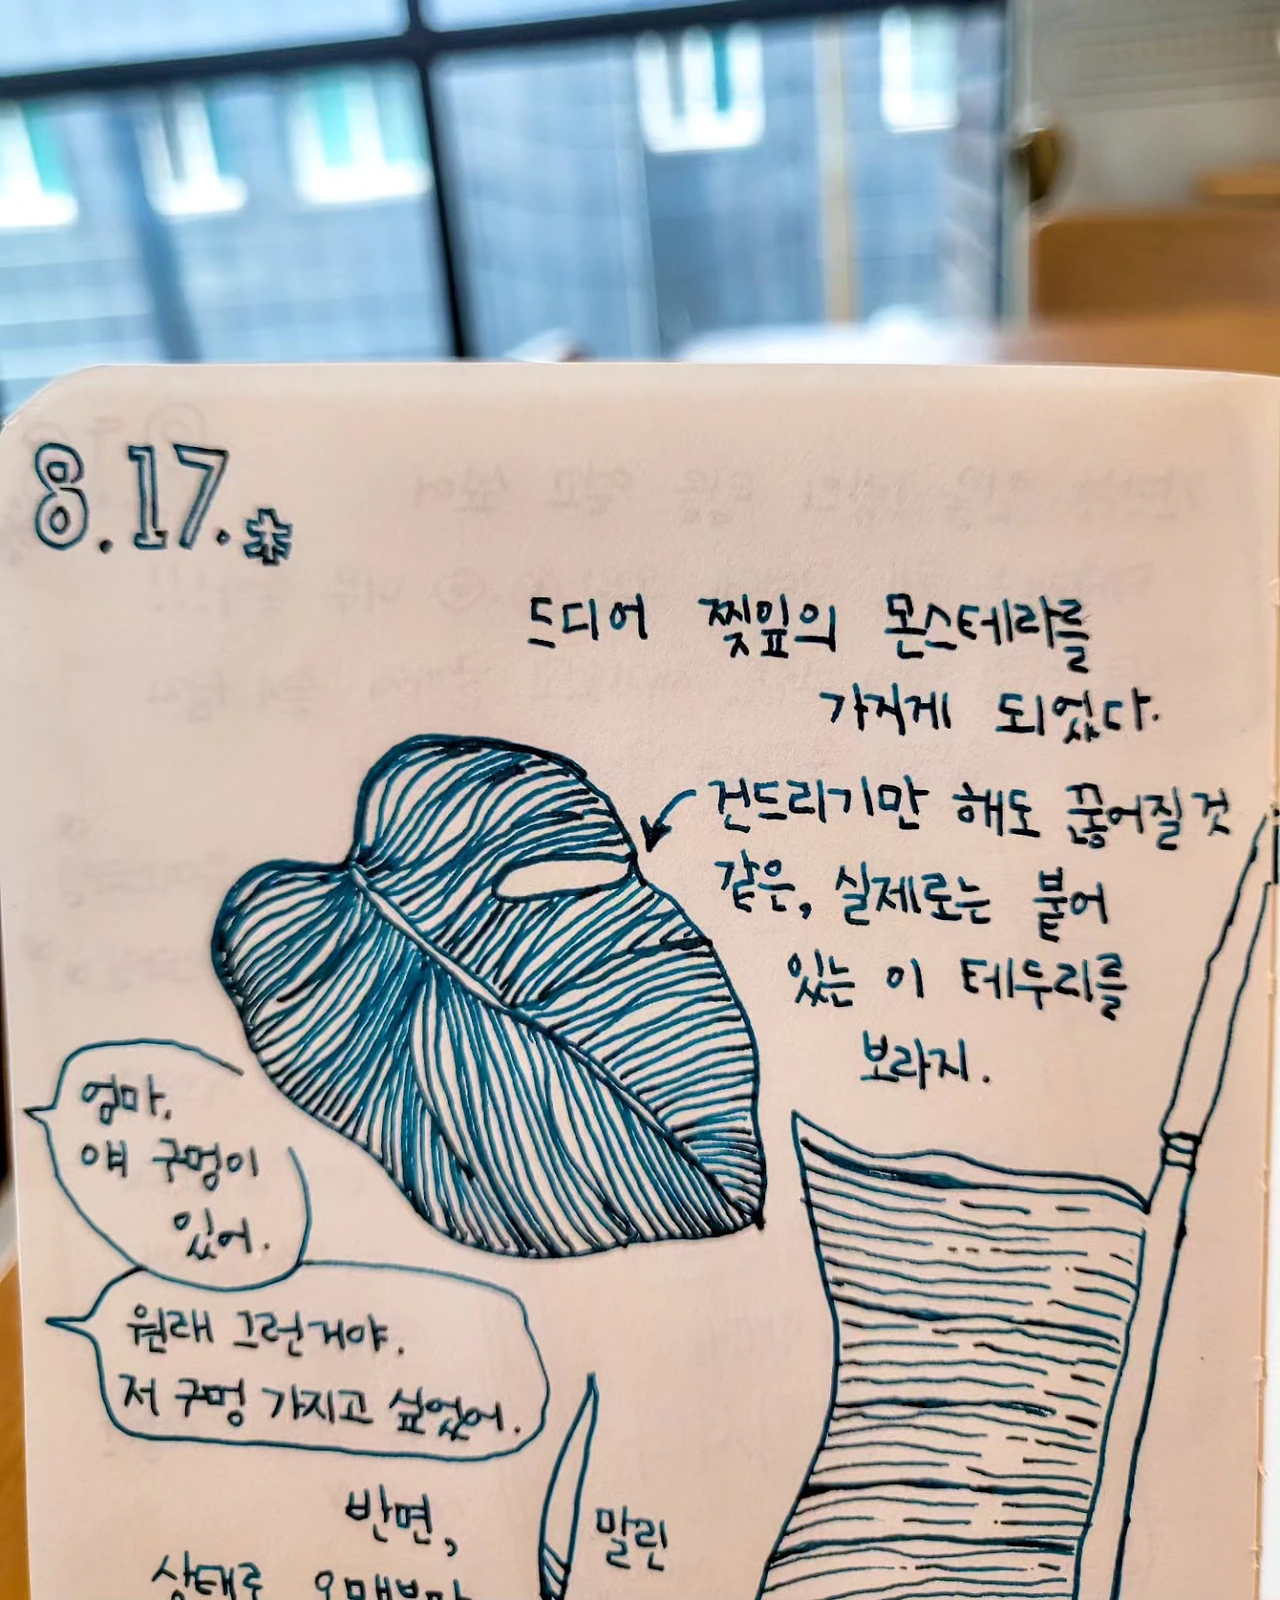 8.17.
드디어 찢잎의 몬스테라를
가지게 되었다.
건드리기만 해도 끊어질 것
같은, 실제로는 붙어
있는 이 테두리를
보라지.
엄마.
얘 구멍이
있어.
원래 그런거야.
저 구멍 가지고 싶었어.
반면,
말린
상태로